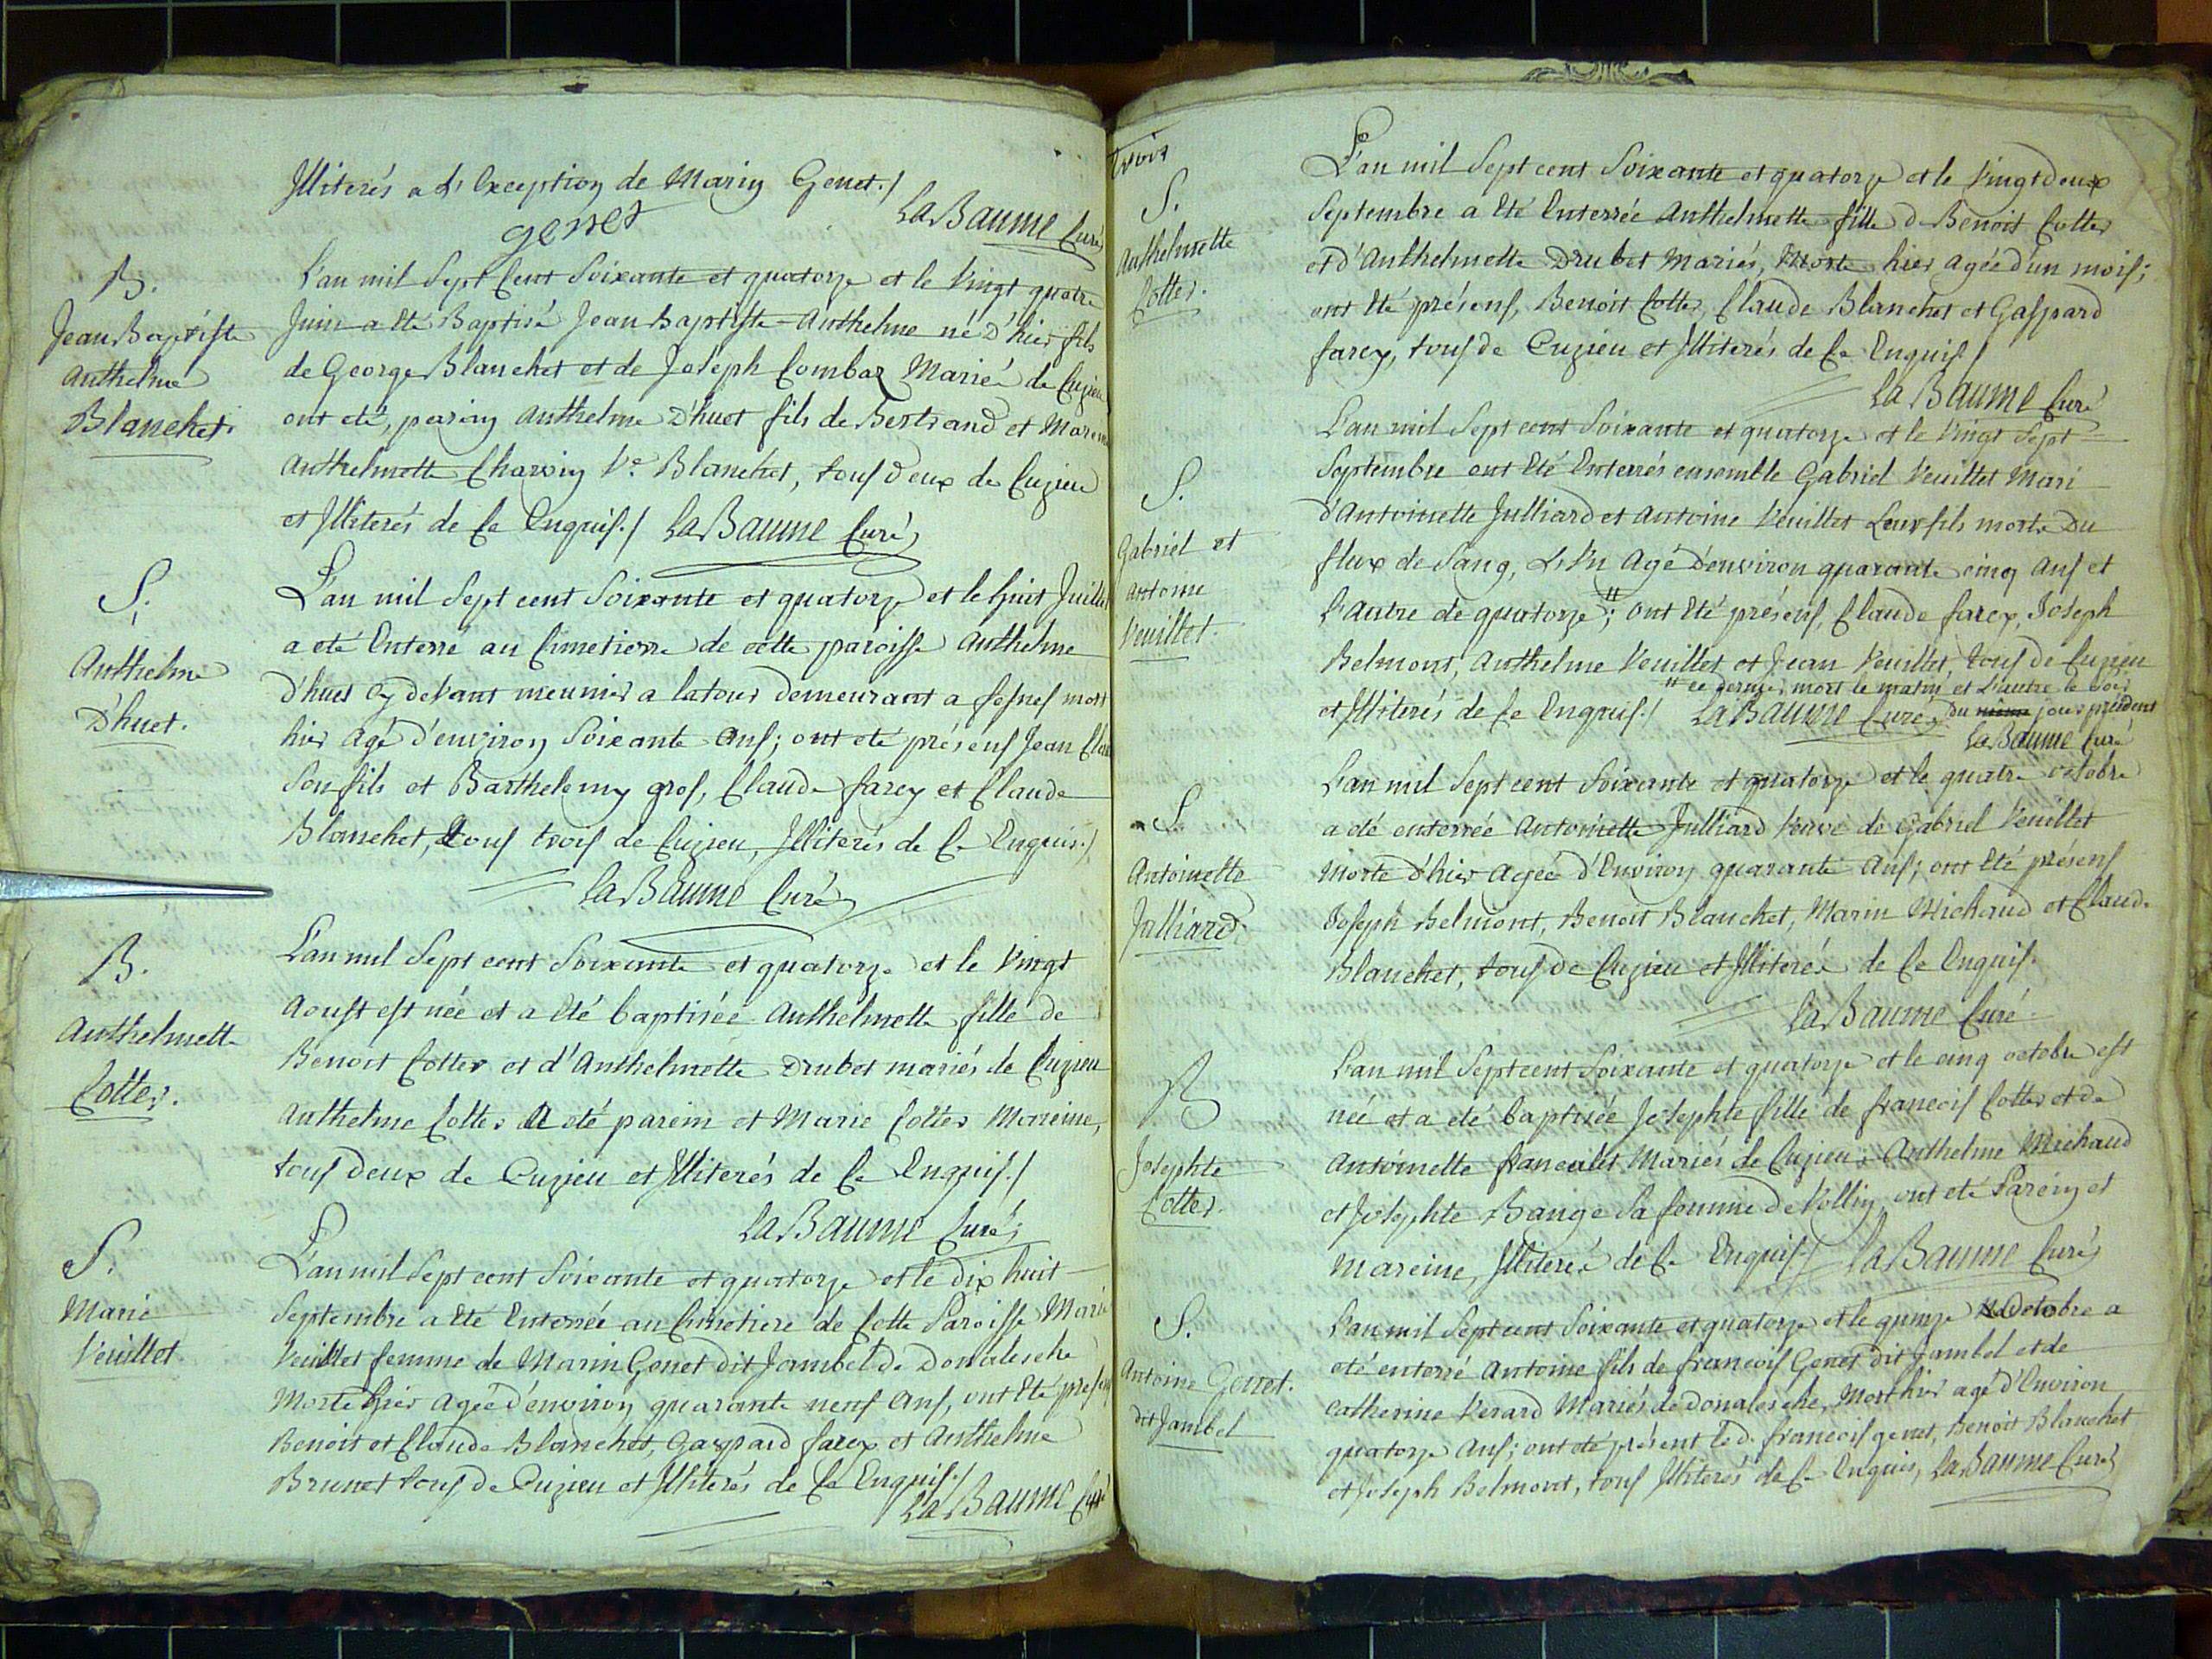 Illiterés a L'Exception de Marin Genet./
genet
LaBaume Curé
B.
Jean Baptiste
Anthelme
Blanchet.
L'an mil Sept Cent Soixante et quatorze et le Vingt quatre
Juin a Eté Baptisé Jean Baptiste Anthelme né d'hier fils
de George Blanchet et de Joseph Combaz Mariés de Cuzieu
ont eté, parein Anthelme D'huet fils de Bertrand et Mareine
Anthelmette Charvin Ve. Blanchet, tous deux de Cuzieu
et Illiterés de Ce Enquis./ LaBaume Curé
S.
Anthelme
D'huet.
L'an mil Sept cent Soixante et quatorze et le huit Juillet
a eté Enterré au Cimetierre de cette paroisse Anthelme
d'huet Cy devant meunier a latour demeurant a Cesnes mort
hier Agé d'environ Soixante Ans; ont eté présens Jean
Son fils et Barthelemy gros, Claude farcy et Claude
Blanchet, tous trois de Cuzieu, Illiterés de Ce Enquis./
LaBaume Curé
B.
Anthelmette
Cotter.
L'an mil Sept cent Soixante et quatorze et le Vingt
Aoust est née et a Eté baptisée Anthelmette fille de
Benoit Cotter et d'Anthelmette Drubet mariés de Cuzieu
Anthelme Cotter a eté parein et Marie Cotter Mareine,
tous deux de Cuzieu et Illiterés de Ce Enquis./
LaBaume Curé
S.
Marie
Veuillet.
L'an mil Sept cent Soixante et quatorze et le dix huit
Septembre a Eté Enterrée au Cimetiere de Cette Paroisse Marie
Veuillet femme de Marin Genet dit Jambel de Donalesche
Morte hier Agée d'environ quarante neuf Ans, ont Eté presens
Benoit et Claude Blanchet, Gaspard farcy et Anthelme
Brunet tous de Cuzieu et Illiterés de Ce Enquis./
LaBaume Curé
trois
S.
Anthelmette
Cotter.
L'an mil Sept cent Soixante et quatorze et le Vingt deux
Septembre a Eté Enterrée Anthelmette fille de Benoit Cotter
et d'Anthelmette Drubet Mariés, Morte hier Agée d'un mois;
ont Eté présens, Benoit Cotter, Claude Blanchet et Gaspard
farcy, tous de Cuzieu et Illiterés de Ce Enquis/
LaBaume Curé
S.
Gabriel et
Antoine
Veuillet.
L'an mil Sept cent Soixante et quatorze et le Vingt Sept
Septembre ont Eté Enterrés ensemble Gabriel Veuillet Mari
d'Antoinette Julliard et Antoine Veuillet Leur fils morts du
flux de Sang, L'Un Agé d'environ quarante cinq Ans et
L'Autre de quatorze"; ont Eté présens, Claude farcy, Joseph
Belmont, Anthelme Veuillet et Jean Veuillet tous de Cuzieu
" ce dernier mort le matin et L'autre le Soir
et Illiterés de Ce Enquis./ LaBaume Curé du même jour précédent
LaBaume Curé
S.
Antoinette
Julliard.
L'an mil Sept cent Soixante et quatorze et le quatre octobre
a eté enterrée Antoinette Julliard Veuve de Gabriel Veuillet
Morte d'hier Agée d'Environ quarante Ans; ont Eté présens
Joseph Belmont, Benoit Blanchet, Marin Michaud et Claude
Blanchet, tous de Cuzieu et Illiterés de Ce Enquis.
LaBaume Curé
B
Josephte
Cotter.
L'an mil Sept cent Soixante et quatorze et le cinq octobre est
née et a eté baptisée Josephte fille de francois Cotter et de
Antoinette francalet Mariés de Cuzieu; Anthelme Michaud
et Josephte Bauge Sa femme de Vollin ont eté Parein et
Mareine, Illiterés de Ce Enquis/ LaBaume Curé
S.
Antoine Genet.
dit Jambel
L'an mil Sept cent Soixante et quatorze et le quinze Octobre a
eté enterré Antoine fils de francois Genet dit Jambel et de
Catherine Verard Mariés de Donalesche, Mort hier agé d'Environ
quatorze Ans; ont eté présent led. francois genet, Benoit Blanchet
et Joseph Belmont, tous Illiterés de Ce Enquis, LaBaume Curé